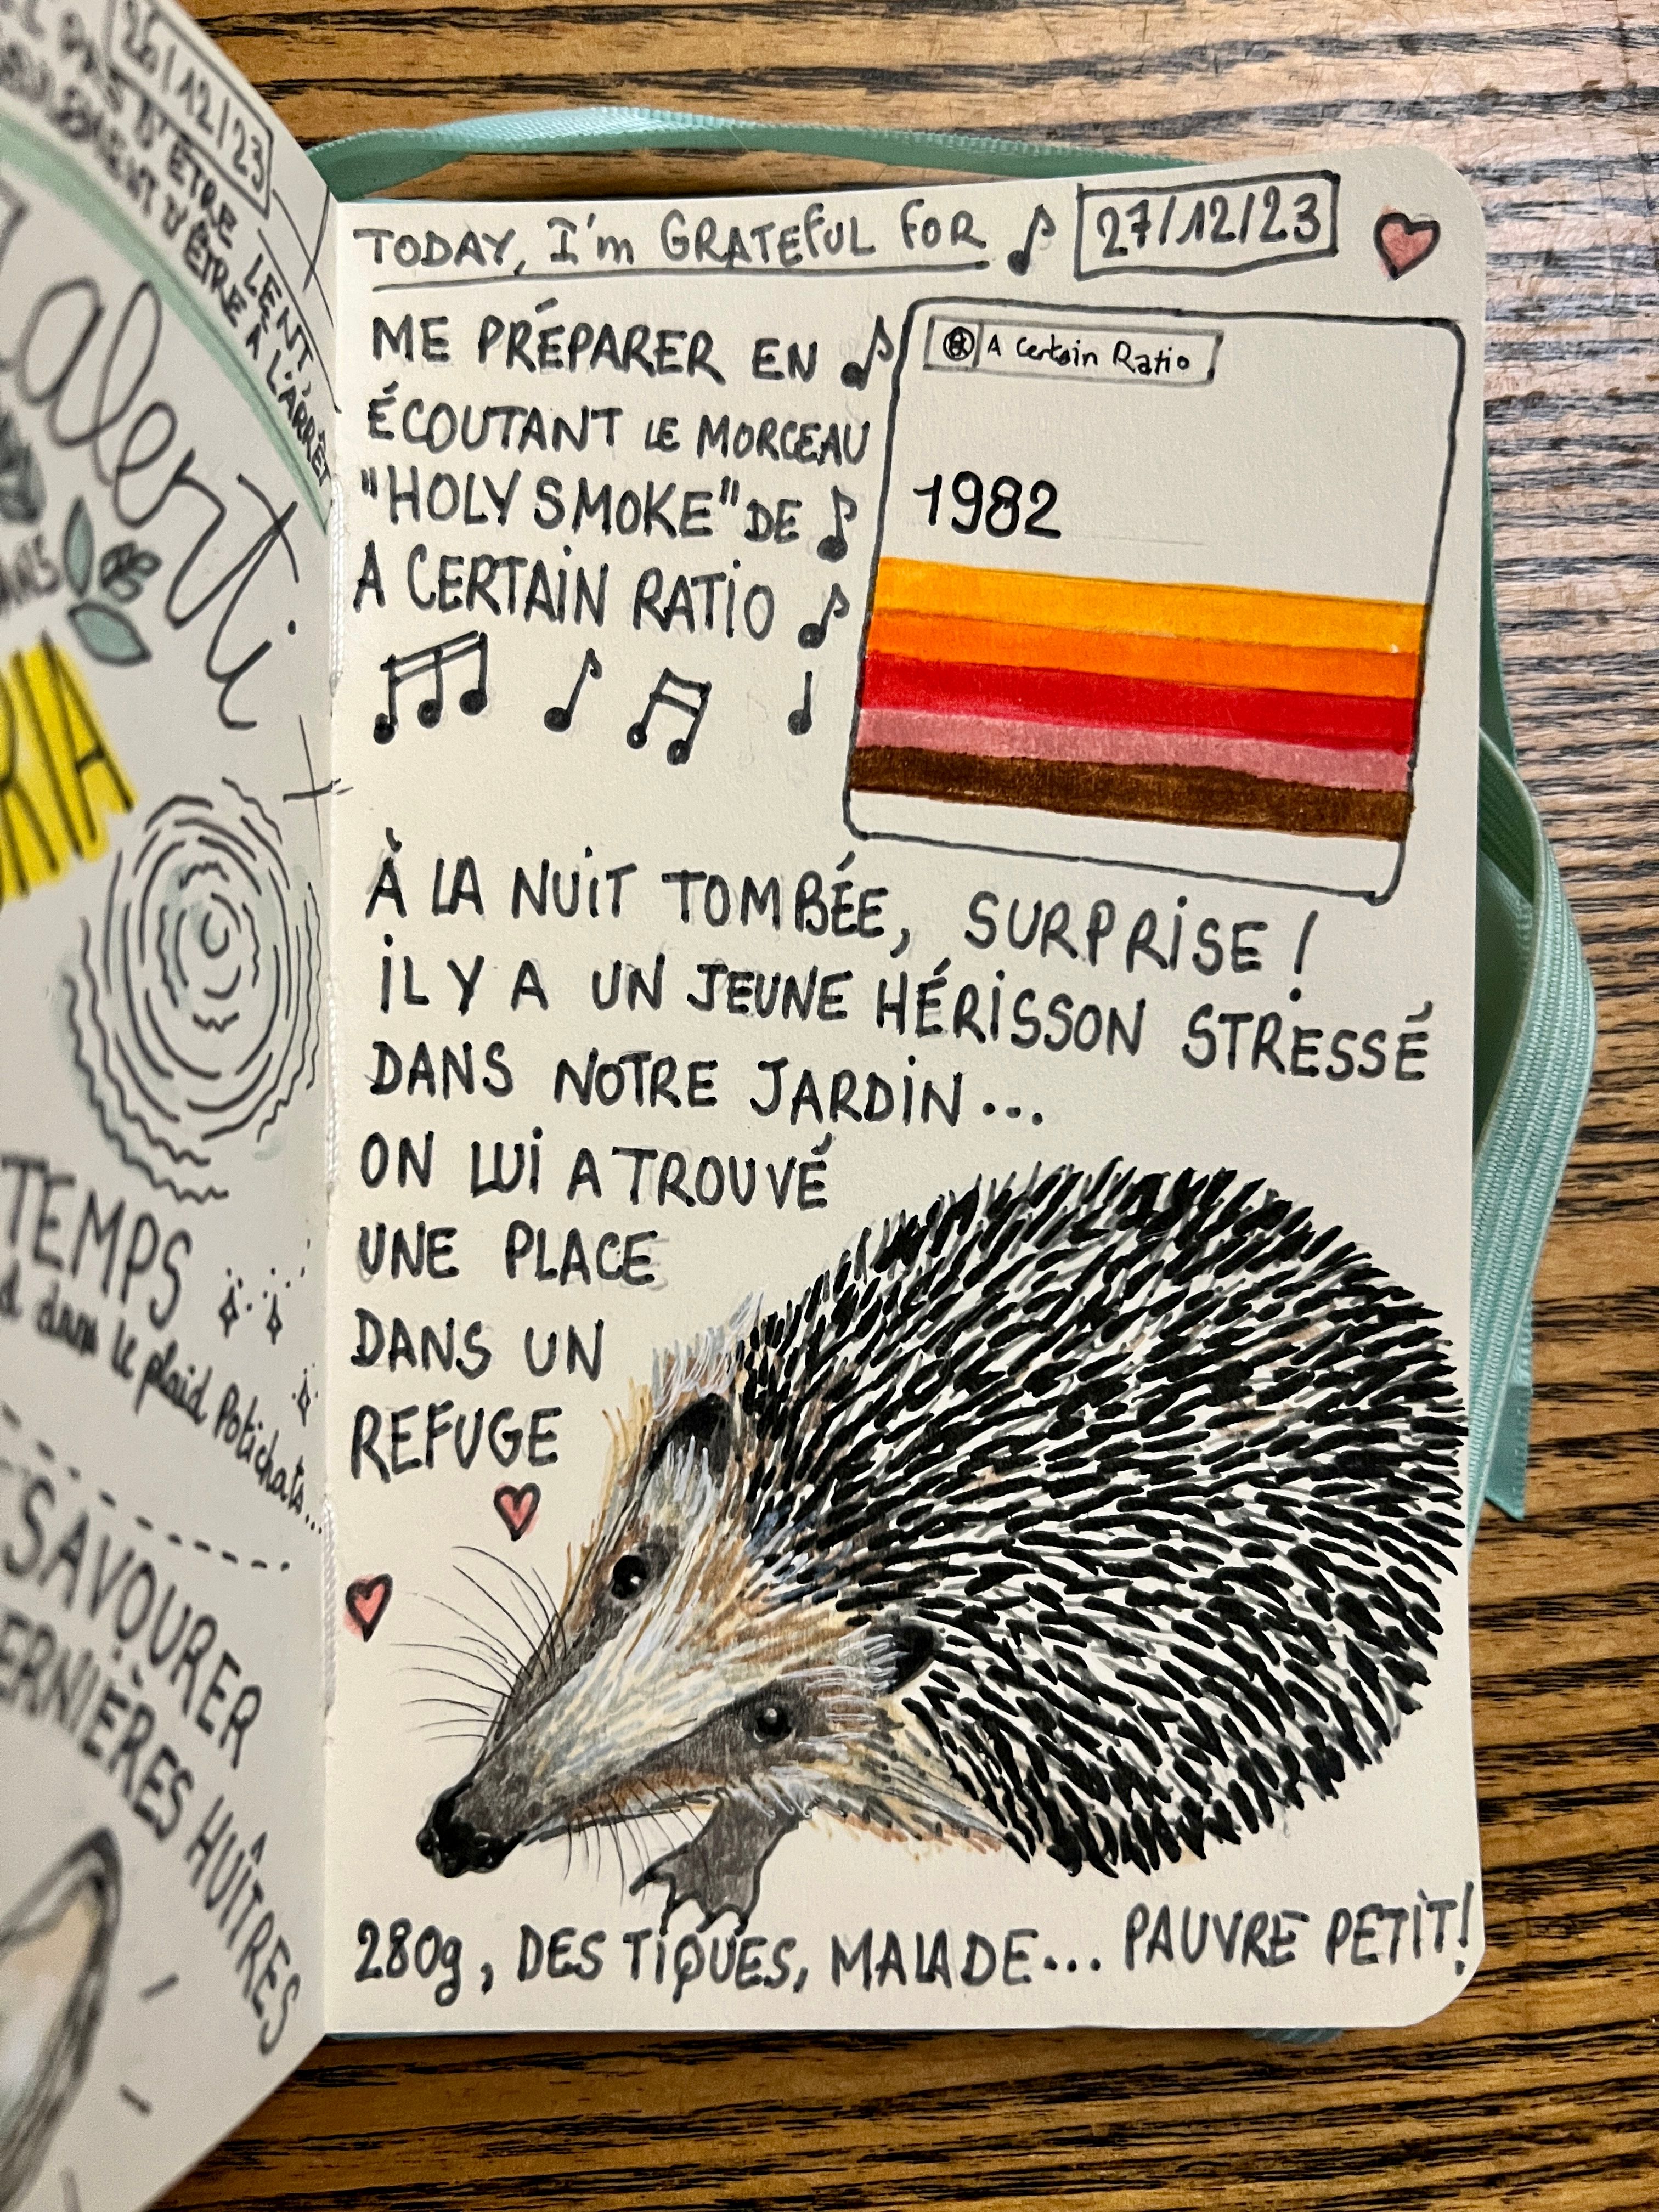 26/12/23
D'ÊTRE LENT,
D'ÊTRE À L'ARRÊT
TEMPS
dans le plaid Potichats...
SAVOURER
HUÎTRES
TODAY, I'm GRATEFUL FOR 27/12/23
ME PRÉPARER EN
ÉCOUTANT LE MORCEAU
"HOLY SMOKE" DE
A CERTAIN RATIO
A Certain Ratio
1982
À LA NUIT TOMBÉE, SURPRISE!
IL Y A UN JEUNE HÉRISSON STRESSÉ
DANS NOTRE JARDIN...
ON LUI A TROUVÉ
UNE PLACE
DANS UN
REFUGE
280g, DES TIQUES, MALADE... PAUVRE PETIT!